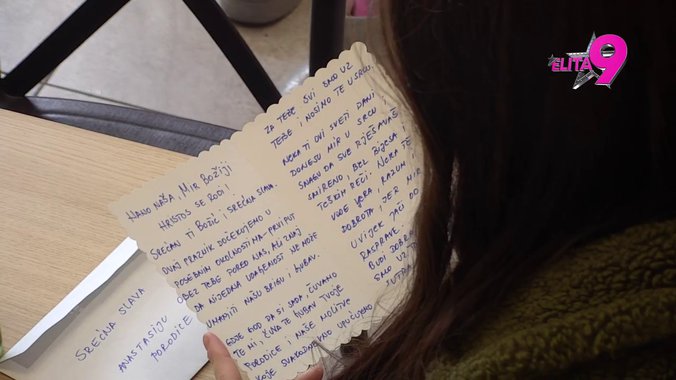 ELITA 9
NANO NAŠA, MIR BOŽIJI
HRISTOS SE RODI!
SREĆAN TI BOŽIĆ I SREĆNA SLAVA.
OVAJ PRAZNIK DOČEKUJEMO U
POSEBNIM OKOLNOSTIMA - PRVI PUT
BEZ TEBE PORED NAS, ALI ZNAJ
DA NIJEDNA UDALJENOST NE MOŽE
UMANJITI NAŠU BRIGU I LJUBAV.
GDJE GOD DA SI SADA, ČUVAMO
TE MI, ČUVA TE LJUBAV TVOJE
PORODICE I NAŠE MOLITVE
KOJE UPUĆUJEMO
ZA TEBE SVI SMO UZ
TEBE I NOSIMO TE U SRCU.
NEKA TI OVI SVETI DANI
DONESU MIR U SRCU I
SNAGU DA SVE RJEŠAVAŠ
SMIRENO, BEZ BIJESA
TEŠKIH REČI. NEKA TE
VODE VJERA, RAZUM
DOBROTA JER MIR
UVIJEK JAČI OD
RASPRAVE.
BUDI DOBRA
SAMO UZ
SUTRA
SREĆNA SLAVA
ANASTASIJU
PORODICE